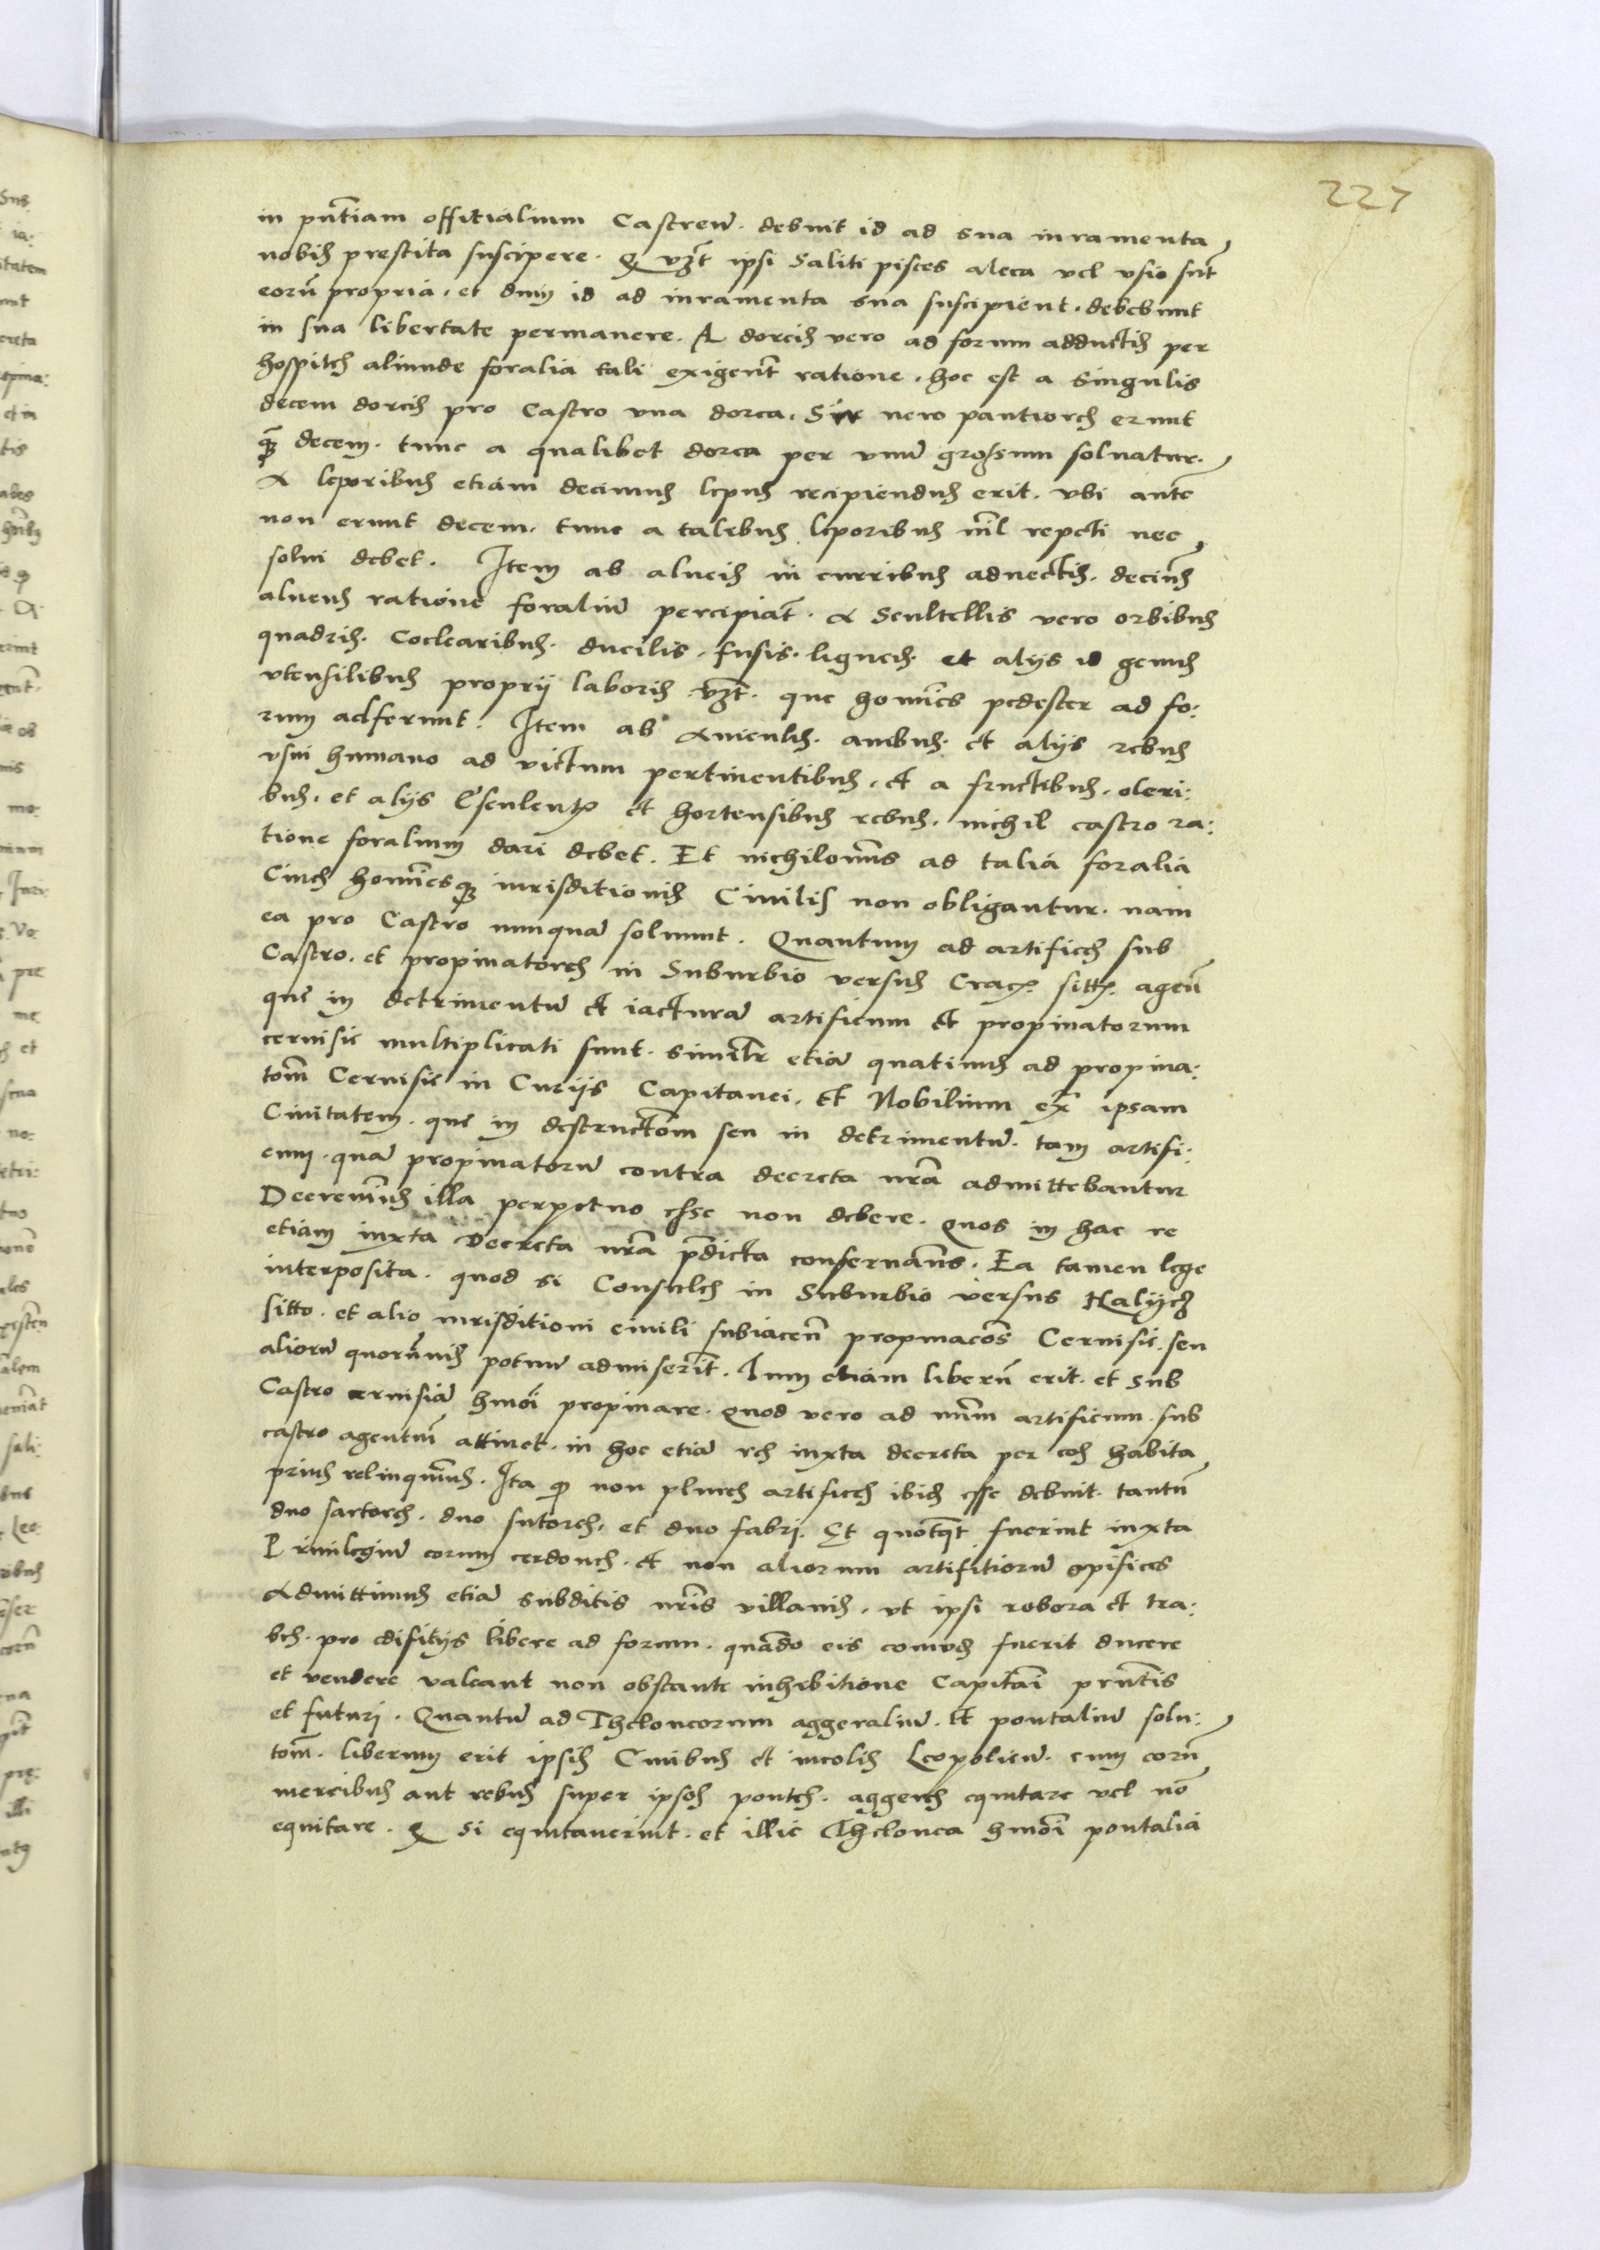 227
in pñtiam offitialium Castren̄. debuit id ad sua iuramenta
nobis prestita suscipere. Q vz̄t ipsi Saliti pisces aleca vel vsio sūt
eorū propria. et dum id ad iuramenta sua suscipient. debebunt
in sua libertate permanere. A dorcis vero ad forum adductis per
hospites aliunde foralia tali exigent ratione. hoc est a singulis
decem dorcis pro Castro vna dorca. Sin vero pautiores erunt
q̄z decem. tunc a qualibet dorca per vnū grossum soluatur.
A leporibus etiam decimus lepus recipiendus erit. vbi autē
non erunt decem. tunc a talibus leporibus nil̄ repeti nec
solui debet. Item ab alueis in curribus aduectis. decimus
alueus ratione foraliū percipiat̄. A Scultellis vero orbibus
quadris. Coclearibus. ducilis. fusis. ligneis. et alijs id genus
vtensilibus proprij laboris vz̄t. que homīes pedester ad fo:
rum adferunt. Item ab Auiculis. auibus. et alijs rebus
vsui humano ad victum pertinentibus. et a fructibus. oleri:
bus. et alijs Esculentꝭ et hortensibus rebus. nichil castro ra:
tione foralium dari debet. Et nichilomīus ad talia foralia
Ciues homīesqz iurisditionis Ciuilis non obligantur. nam
ea pro Castro nunquā soluunt. Quantum ad artifices sub
Castro. et propinatores in Suburbio versus Cracꝭ sittꝭ. ageñ
que in detrimentū et iacturā artificum et propinatorum
ceruisie multiplicati sunt. similr̄ etiā quatinus ad propina:
tom̄ Ceruisie in Curijs Capitanei. et Nobilium ex̄ ipsam
Ciuitatem. que in destructom̄ seu in detrimentū. tam artifi:
cum. quā propinatorū contra decreta nr̄a admittebantur
Decreuim̄us illa perpetuo esse non debere. Quos in hac re
etiam iuxta Decreta nr̄a p̄dicta conseruam̄s. Ea tamen lege
interposita. quod si Consules in Suburbio versus Halijcz
sitto. et alio iurisditioni ciuili subiaceñ propinacōs Ceruisie. seu
aliorū quorūuis potuū admiserīt. Tum etiam liberū erit. et sub
Castro ceruisiā hmōi propinare. Quod vero ad nūm artificum. sub
castro agentiū attinet. in hoc etiā res iuxta decreta per eos habita
prius relinquim̄us. Ita qꝫ non plures artifices ibidē esse debuit. tantū
duo sartores. duo sutores. et duo fabri. Et quotqt̄ fuerint iuxta
Priuilegiū eorum cerdones. et non aliorum artifitiorū opifices
Admittimus etiā subditis nr̄is villanis. vt ipsi robora et tra:
bes. pro edifitijs libere ad forum. quādo eis comodū fuerit ducere
et vendere valeant non obstante inhibitione Capitāi prn̄tis
et futuri. Quantū ad Theloneorum aggeraliū. et pontaliū solu:
tom̄. liberum erit ipsis Ciuibus et incolis Leopolieñ. cum eorū
mercibus aut rebus super ipsos pontes. aggeres equitare vel nō
equitare. Q si equitauerint. et illic Thelonea hmōi pontalia